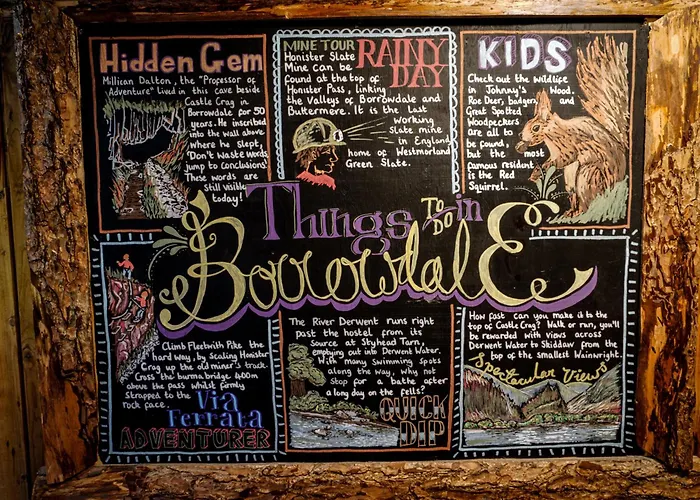 Hidden Gem
Millican Dalton, the "Professor of
Adventure" lived in this cave beside
Castle Crag in
Borrowdale for 50
years. He inscribed
into the wall above
where he slept,
"Don't waste words,
jump to conclusions".
These words are
still visible
today!
MINE TOUR
RAINY
DAY
Honister Slate
Mine can be
found at the top of
Honister Pass, linking
the Valleys of Borrowdale and
Buttermere. It is the last
working
slate mine
in England,
home of Westmorland
Green Slate.
KIDS
Check out the wildlife
in Johnny's Wood.
Roe Deer, badgers, and
Great Spotted
Woodpeckers
are all to
be found,
but the most
famous resident
is the Red
Squirrel.
Things TO DO in
BorrowdalE
Climb Fleetwith Pike the
hard way, by scaling Honister
Crag up the old miner's track.
Cross the burma bridge 400m
above the pass whilst firmly
strapped to the
rock face.
Via
Ferrata
ADVENTURER
The River Derwent runs right
past the hostel from its
source at Styhead Tarn,
emptying out into Derwent Water.
With many swimming spots
along the way, why not
stop for a bathe after
a long day on the fells?
QUICK
DIP
How fast can you make it to the
top of Castle Crag? Walk or run, you'll
be rewarded with views across
Derwent Water to Skiddaw from the
top of the smallest Wainwright.
Spectacular Views